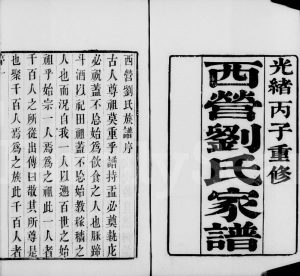 光緒丙子重修
西營劉氏家譜
西營劉氏族譜序
古人尊祖莫重乎譜持盃必奠執
必祝蓋不忘始為飲食之人也豚蹄
斗酒以祀田祖蓋不忘始教稼穡之
人也而況自我一人以遡百世之始
祖乎始宗一人焉為之祖此一人者
千百人之所從出傳曰敬其所尊是
也聚千百人焉為之族此千百人者